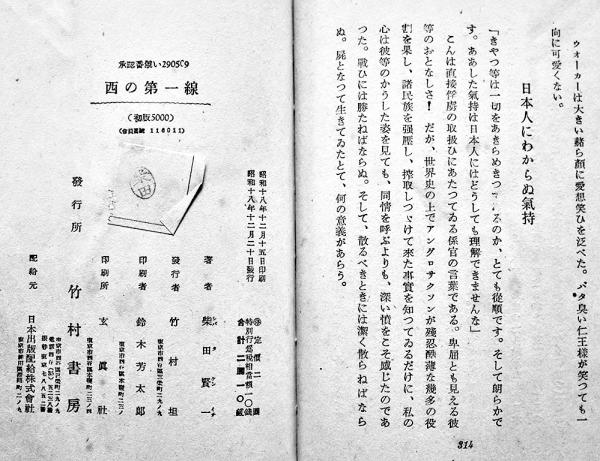 ウォーカーは大きい赭ら顔に愛想笑ひを泛べた。バタ臭い仁王様が笑つても一
向に可愛くない。
日本人にわからぬ氣持
「きやつ等は一切をあきらめきつてゐるのか、とても從順です。そして朗らかで
す。ああした氣持は日本人にはどうしても理解できませんな」
こんは直接俘虜の取扱ひにあたつてゐる係官の言葉である。卑屈とも見える彼
等のおとなしさ！だが、世界史の上でアングロサクソンが殘忍酷薄な幾多の役
割を果し、諸民族を強壓し、搾取しつゞけて來た事實を知つてゐるだけに、私の
心は彼等のかうした姿を見ても、同情を呼ぶよりも、深い憤をこそ感じたのであ
つた。戰ひには勝たねばならぬ。そして、散るべきときには潔く散らねばなら
ぬ。屍となつて生きてゐたとて、何の意義があらう。
314
承認番號い290509
西の第一線
（初版5000）
（會員番號 116011）
昭和十八年十二月十五日印刷
昭和十八年十二月二十日發行
定價二圓
特別行爲税相當額一〇錢
合計二圓一〇錢
著者 柴田賢一
發行者 竹村坦
東京市四谷區
印刷者 鈴木芳太郎
東京市四谷區本鹽町二三ノ四
印刷所 玄眞社
東京市四谷區本鹽町二三ノ四
發行所 竹村書房
配給元 日本出版配給株式會社